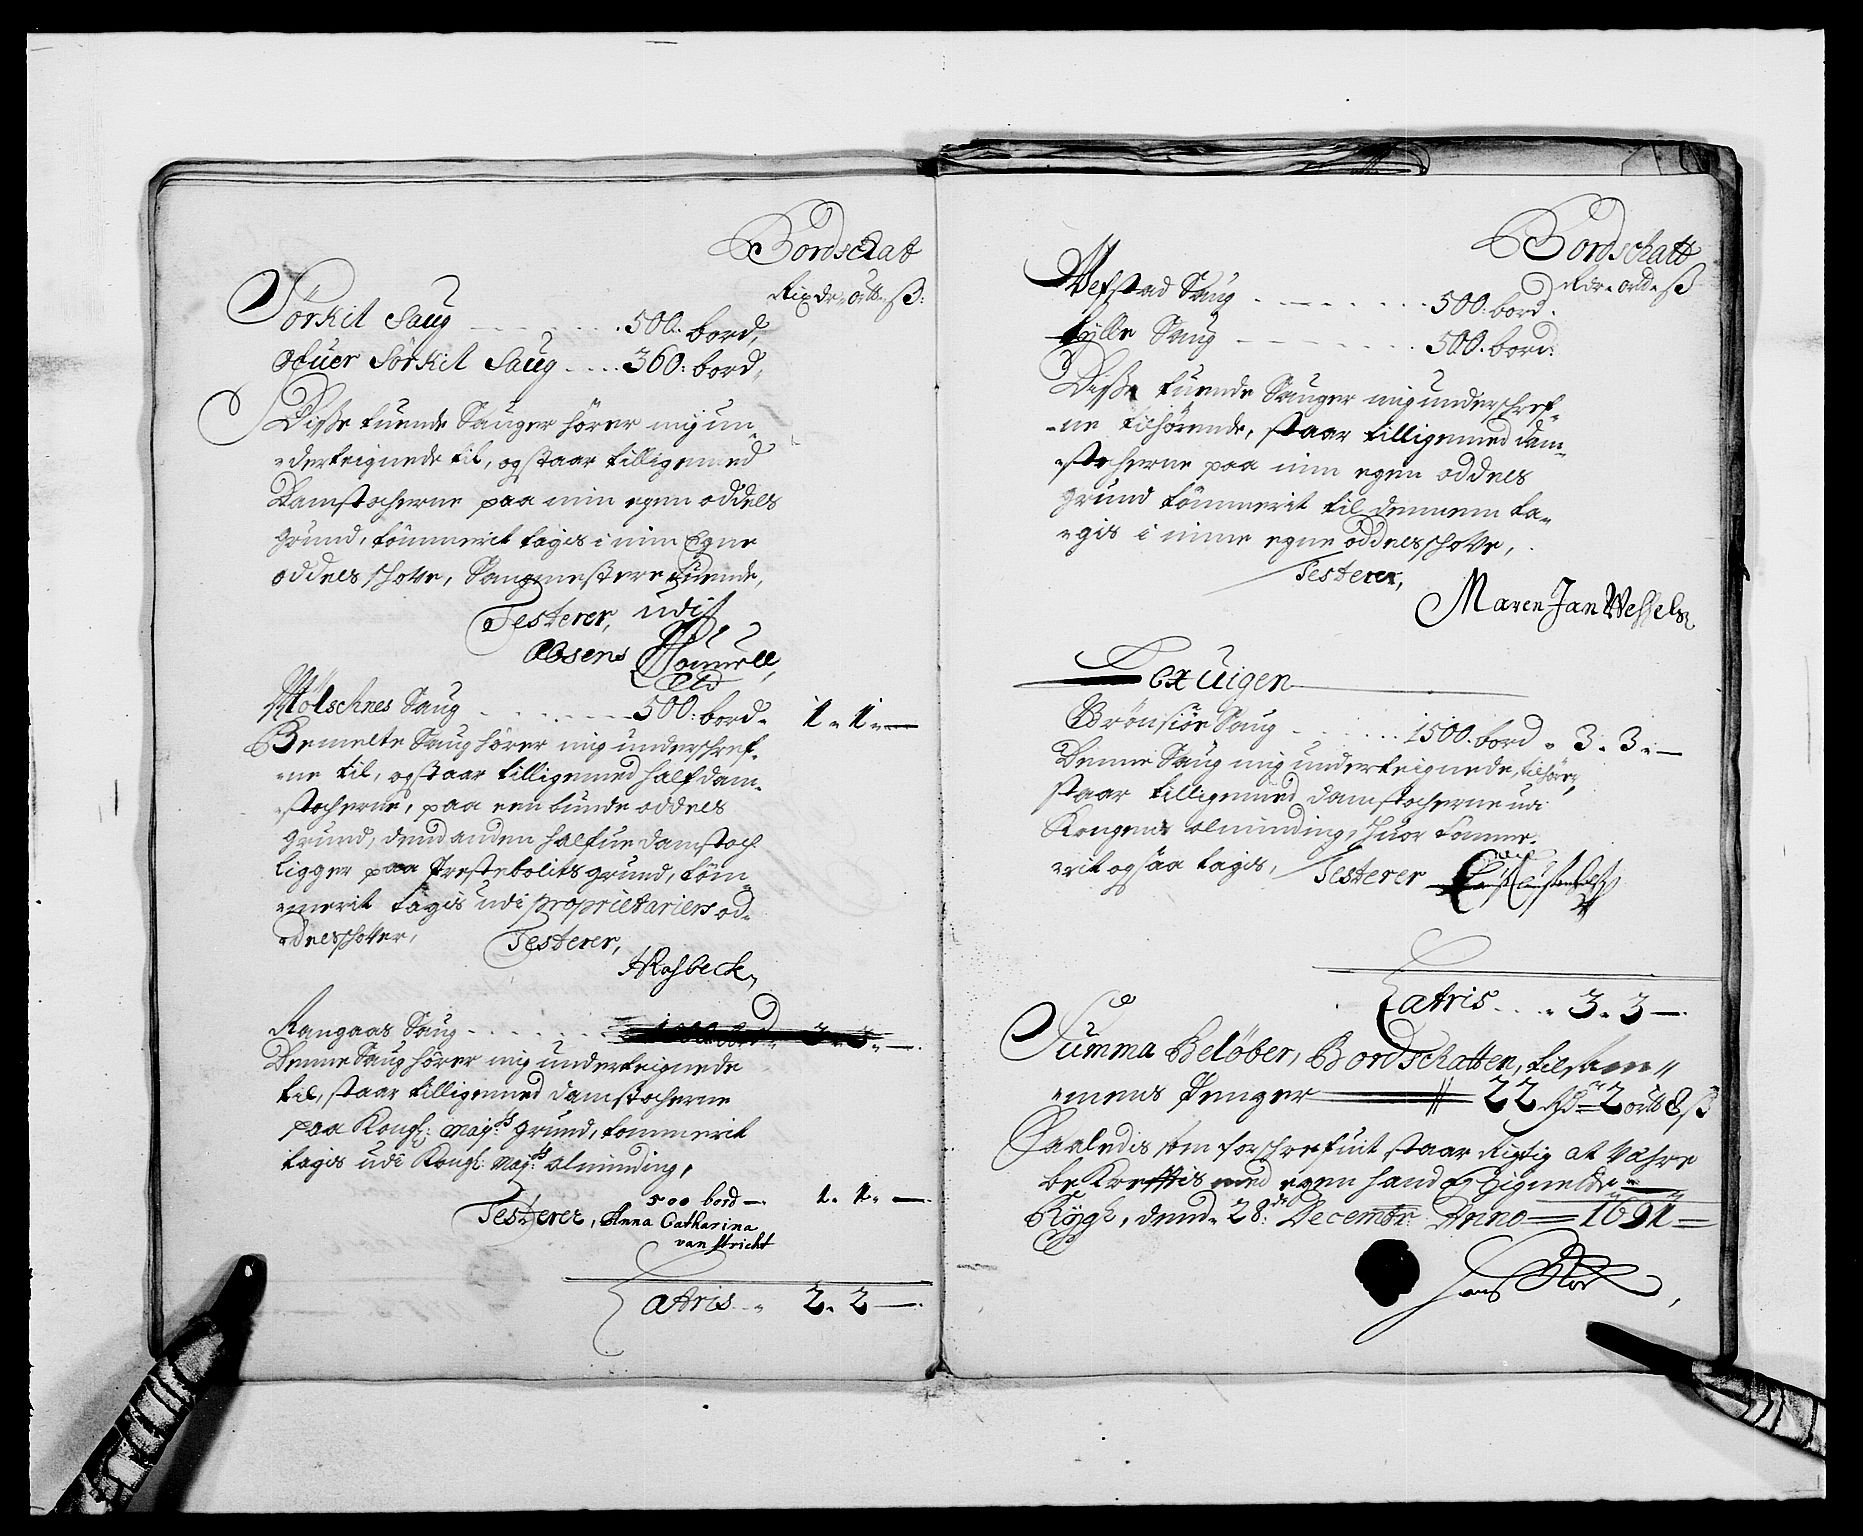 Bordschat
Rixdr ortt ß:
Sørkil Saug 500: bord,
Ofuer Sørkil Saug 360: bord,
Disse tuende Sauger hører mig un-
derteignede til, og staar tilligemed
Damstocherne paa min egen oddels
grund, tömmerit tagis i min Egne
oddels schove, Saugmestere tuende,
Testerer, udi
Absens
Mølschnes Saug 500: bord 1 - 1 -
Bemelte Saug hører mig underschref-
ne til, og staar tilligemed half dam-
stocherne, paa een bunde oddels
grund, dend anden halfue damstoch
ligger paa Prestebolits grund, töm-
merit tagis udi proprietariers od-
dels schover, Testerer,
HRosbeck,
Rangaas Saug 1000 bord 3 - 3 -
Denne Saug hører mig underteignede
til, staar tilligemed damstocherne
paa Kongl: Maj:ts grund, tömmerit
tagis udi Kongl: Maj:ts alminding,
500 bord - 1 - 1 -
Testerer, Anna Catharina
van stricht
Latris 2 - 2 -
Bordschatt
Rdr ortt ß
Vefstad Saug 500: bord.
Fylle Saug 500. bord:
Disse tuende Sauger mig underschref-
ne tilhørende, staar tilligemed dam-
stocherne paa min egen oddels
grund tömmerit til dennem ta-
gis i mine egne oddels schove,
Testerer,
Maren Jan Wessels
Lexuigen
Brönsiöe Saug 1500. bord 3 - 3 -
Denne Saug mig underteignede, tilhører,
staar tilligemed damstocherne ud
Kongens alminding, huor tömme-
rit og saa tagis, Testerer
Latris 3 - 3 -
Summa Beløber, Bordschatten, tilsam-
mens Penger 22 Rdr 2 ortt 8 ß
Saaledis som forschrefuit staar Rigtig at vahre
bekreftis med egen hand og Signette
Rygh, dend 28:de Decembr: Anno 1691